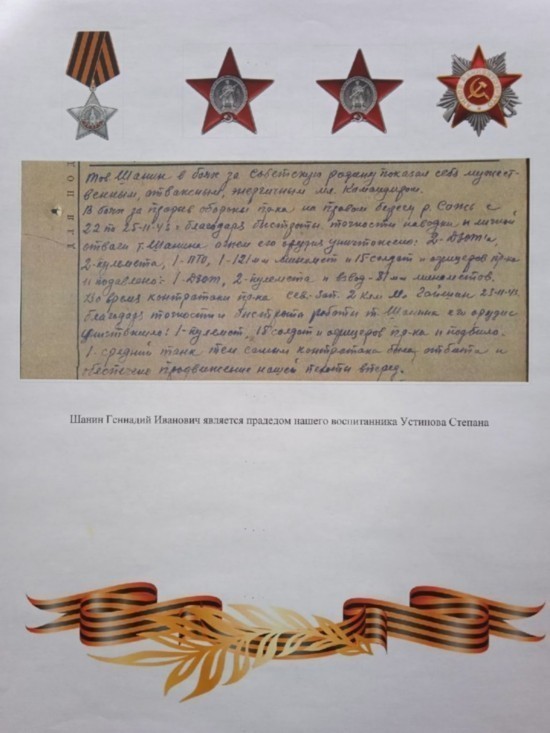 для под
Тов Шанин в боях за советскую родину показал себя мужест-
венным, отважным, энергичным мл. командиром.
В боях за прорыв обороны пр-ка на правом берегу р. Сожь с
22 по 25-11-43 г благодаря быстроты, точности наводки и личной
отваги т. Шанина огнем его орудия уничтожено: 2-ДЗОТ'а,
2-пулемета, 1-ПТО, 1-121мм миномет и 15 солдат и офицеров пр-ка
и подавлено: 1-ДЗОТ, 2-пулемета и взвод-81мм минометов.
Во время контратаки пр-ка сев-зап. 2 км м. Гайшин 25-11-43.
Благодаря точности и быстроты работы т. Шанина его орудие
уничтожила: 1-пулемет, 15 солдат и офицеров пр-ка и подбила
1-средний танк тем самым контратака была отбита и
обеспечено продвижение нашей пехоты вперед.
Шанин Геннадий Иванович является прадедом нашего воспитанника Устинова Степана